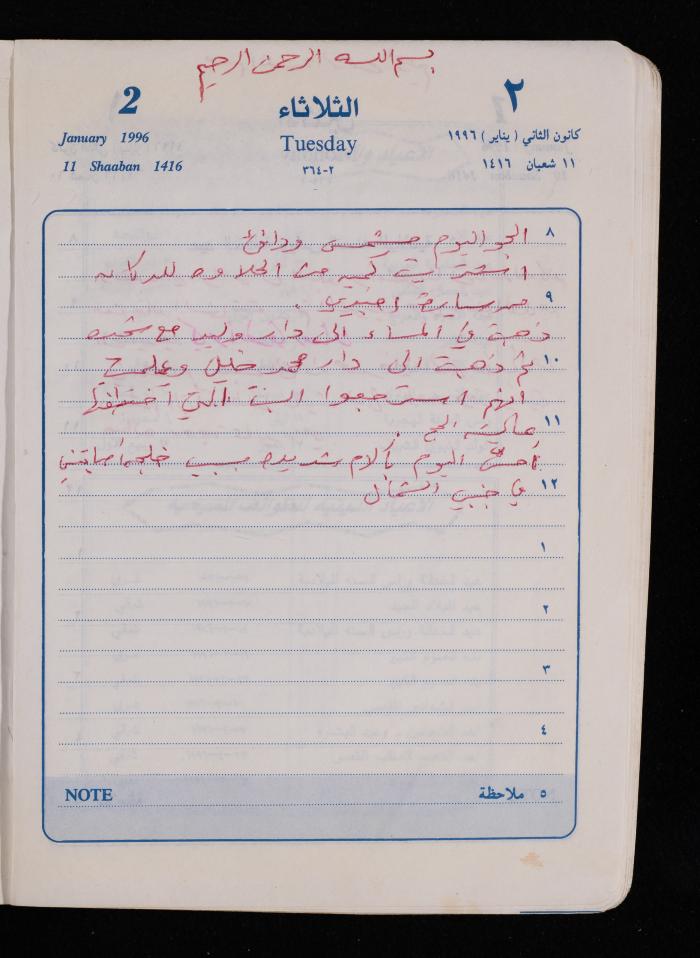 بسم الله الرحمن الرحيم
2 الثلاثاء ٢
January 1996 Tuesday كانون الثاني ( يناير ) ١٩٩٦
11 Shaaban 1416 ٢-٣٦٤ ١١ شعبان ١٤١٦
٨ الجو اليوم مشمس ودافئ
اشتريت كمية من الحلاوه للدكانه
٩ من سيارة
ذهبت في المساء الى دار وليد مع
١٠ ثم ذهبت الى دار محمد خليل وعلمت
انهم استرجعوا البنت التي اختطفها
١١
أحس اليوم بآلام شديده بسبب اصابتني
١٢ في جنبي الشمال
١
٢
٣
٤
NOTE ٥ ملاحظة